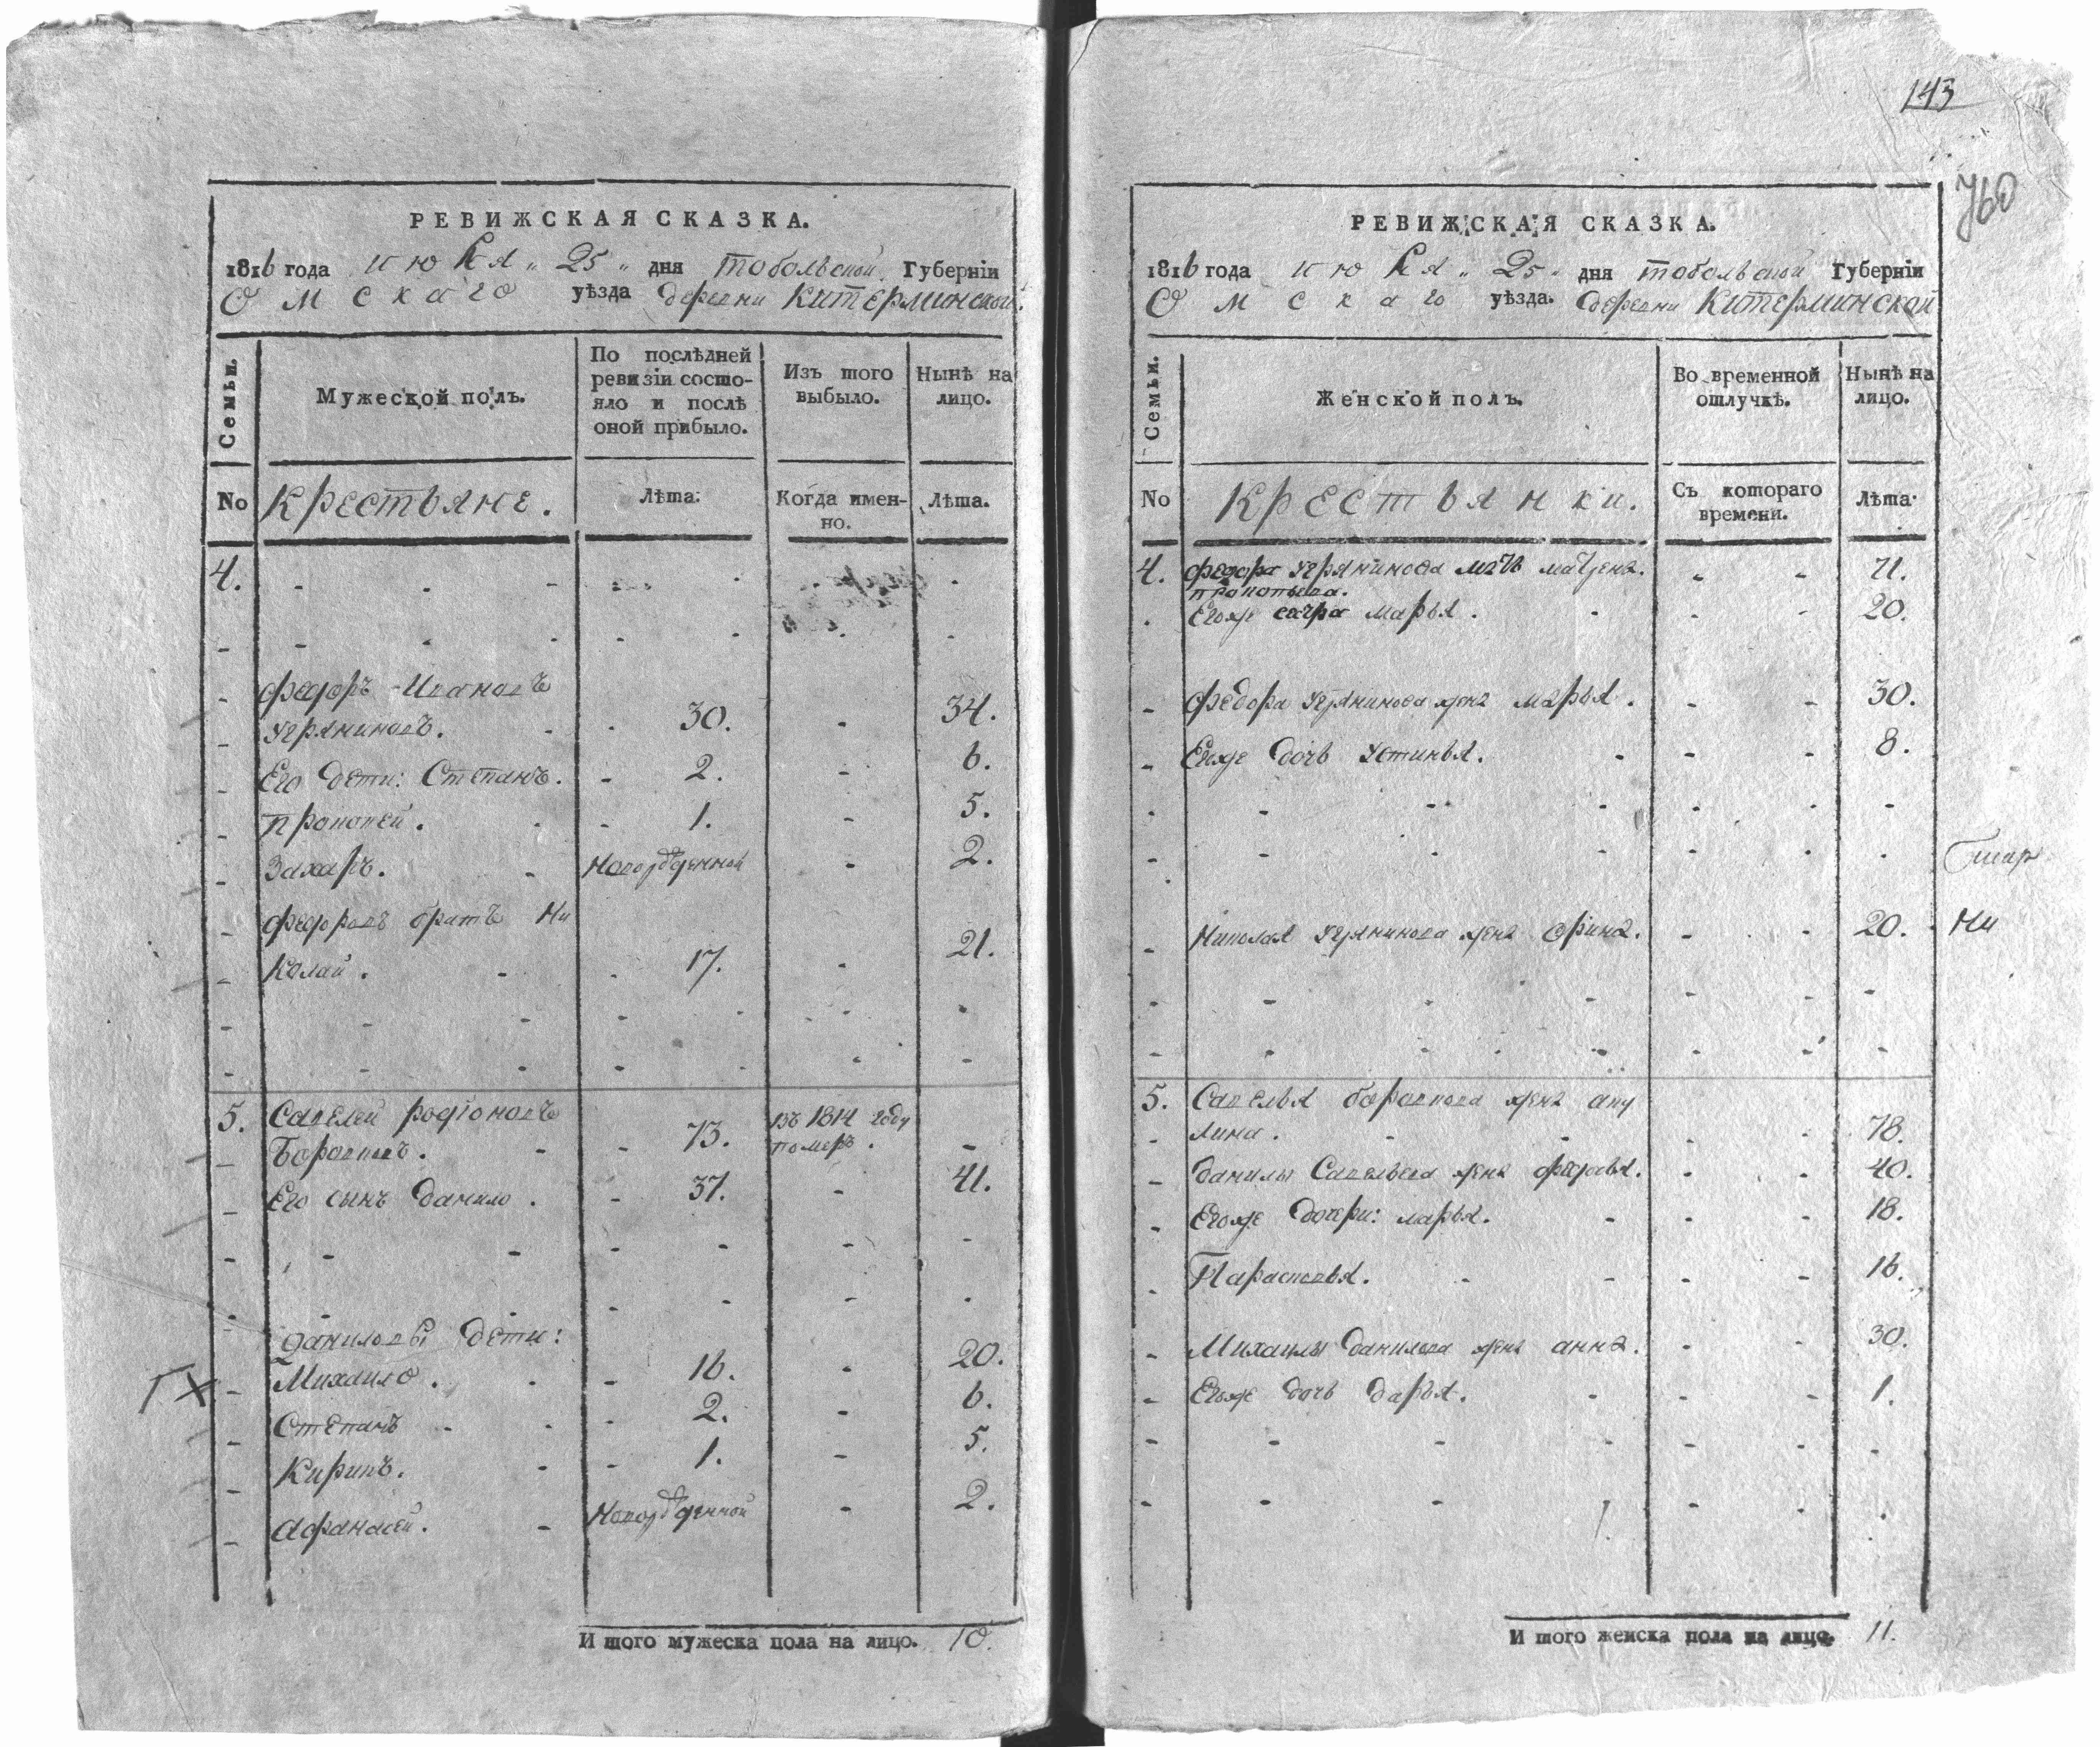 143
760
РЕВИЖСКАЯ СКАЗКА.
1816 года июня 25 дня Тобольской Губернiи
Омскаго уѣзда деревни Китерминской.
Семьи.
Мужеской полъ.
По послѣдней
ревизiи состо-
яло и послѣ
оной прибыло.
Изъ того
выбыло.
Нынѣ на
лицо.
No
Крестьяне.
Лѣта.
Когда имен-
но.
Лѣта.
4.
Федоръ Ивановъ
30. 34.
Его дети: Степанъ. 2. 6.
Прокопей. 1. 5.
Захаръ. Новорожденной 2.
Федоровъ братъ Ни
колай. 17. 21.
5. Савелей Родiоновъ
73. въ 1814 году
померъ.
Его сынъ Данило. 37. 41.
Даниловы дети:
Михаило. 16. 20.
Степанъ 2. 6.
Кирикъ. 1. 5.
Афанасей. Новорожденной 2.
И того мужеска пола на лицо. 10.
РЕВИЖСКАЯ СКАЗКА.
1816 года июня 25 дня Тобольской Губернiи
Омскаго уѣзда. деревни Китерминской
Семьи.
Женской полъ.
Во временной
отлучкѣ.
Нынѣ на
лицо.
No
Крестьянки.
Съ котораго
времени.
Лѣта.
4. Федора мать 71.
Прокопьева.
Егоже сестра Марья. 20.
Федора жена Марья. 30.
Егоже дочь Устинья. 8.
Николая жена Орина. 20. Ни
5. Савелья жена Аку
лина. 78.
Данилы Савельева жена Федосья. 40.
Егоже дочери: Марья. 18.
Парасковья. 16.
Михаилы Данилова жена Анна. 30.
Егоже дочь Дарья. 1.
И того женска пола на лицо. 11.